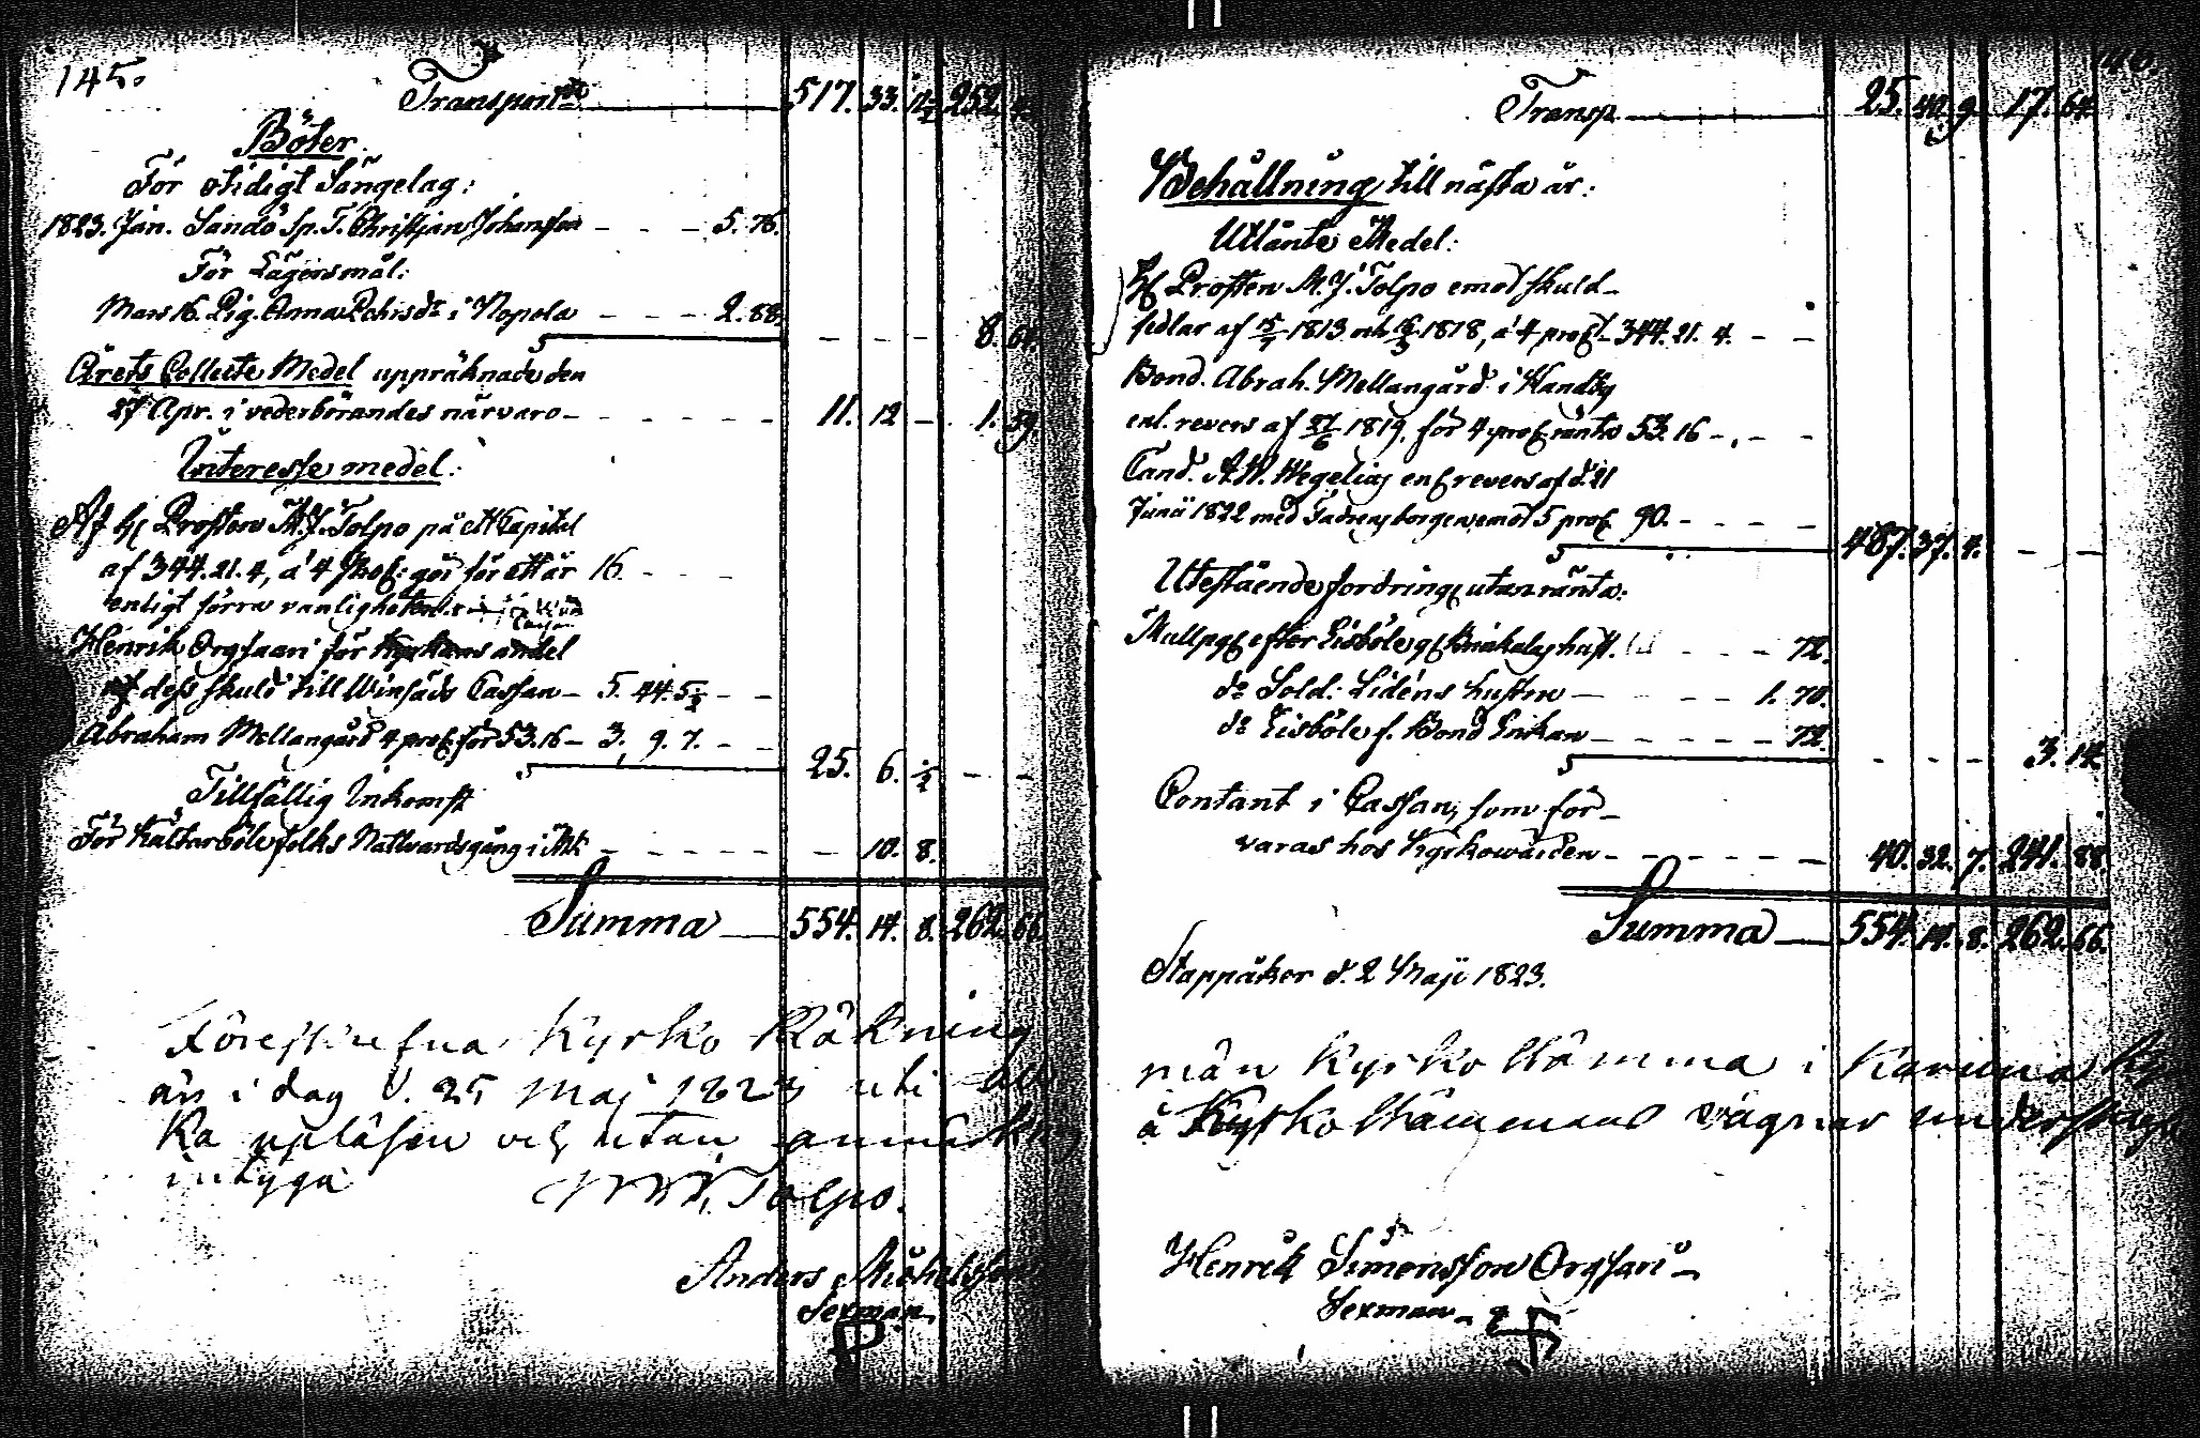 145.
Transport 517. 33. 11½ 252. 4.
Böter.
För otidigt Sängelag:
1823. Jan. Sandö Sp. T. Christjan Johansson - - - 5. 76.
För Lägersmål:
Mars 16. Pig. Anna Behrsdr i Nopola - - - 2. 88.
- - - 8. 64.
Årets Collecte Medel uppräknade den
27 Apr. i vederbörandes närvaro - - - - - - 11. 12 - 1. 59.
Interesse medel:
Af H Prosten M. J. Tolpo på ett Capital
af 344. 21. 4, à 4 proC: gör för ett år 16. - - -
enligt förra vanligheten
Henrik Orgsaari för Kyrkans andel
af dess skuld till Winfads Cassan - 5. 44. 5½ - -
Abraham Mellangård 4 proC för 53. 16 - 3. 9. 7. - -
25. 6. ½ - -
Tillfällig Inkomst
För Kältarböle folks Nattvardsgång i - - - - - - 10. 8.
Summa 554. 14. 8. 262. 66.
Föreskrefna Kyrko Räkning
är i dag d. 25 Maj 1823 uti
ka upläsen och utan anmärkning
intyga Tolpo.
Anders Michelsson
Sexman
Transp. 25. 40. 9. 17. 64.
Behållning till nästa år:
Utlänte Medel:
H Prosten M. J. Tolpo emot skuld-
sedlar af 15/7 1813 och 16/3 1818, à 4 proCt - 344. 21. 4. - -
Bond. Abrah. Mellangård i Handby
enl. revers af 27/6 1819, för 4 proC ränta 53. 16 - - -
Cand. A. W. Wegelius enl revers af d. 21
Junii 1822 med Fadrens borgen emot 5 proC 90. - - - -
487. 37. 4. - -
Utestående fordringar utan ränta:
Mullpgr efter Eisböle hust. - - - 72.
do Sold: Lidéns hustru - - - 1. 70.
do Eisböle f. Bond Enkan - - - - - 72.
- - - 3. 14.
Contant i Cassan, som för-
varas hos Kyrkowärden - - - - - - 40. 32. 7. 241. 88.
Summa 554. 14. 8. 262. 66.
Stappåker d. 2 Maji 1823.
män Kyrko Stämma i Karuna
å Kyrko Stämmans vägnar
Henrik Simonsson Orgsari
Sexman